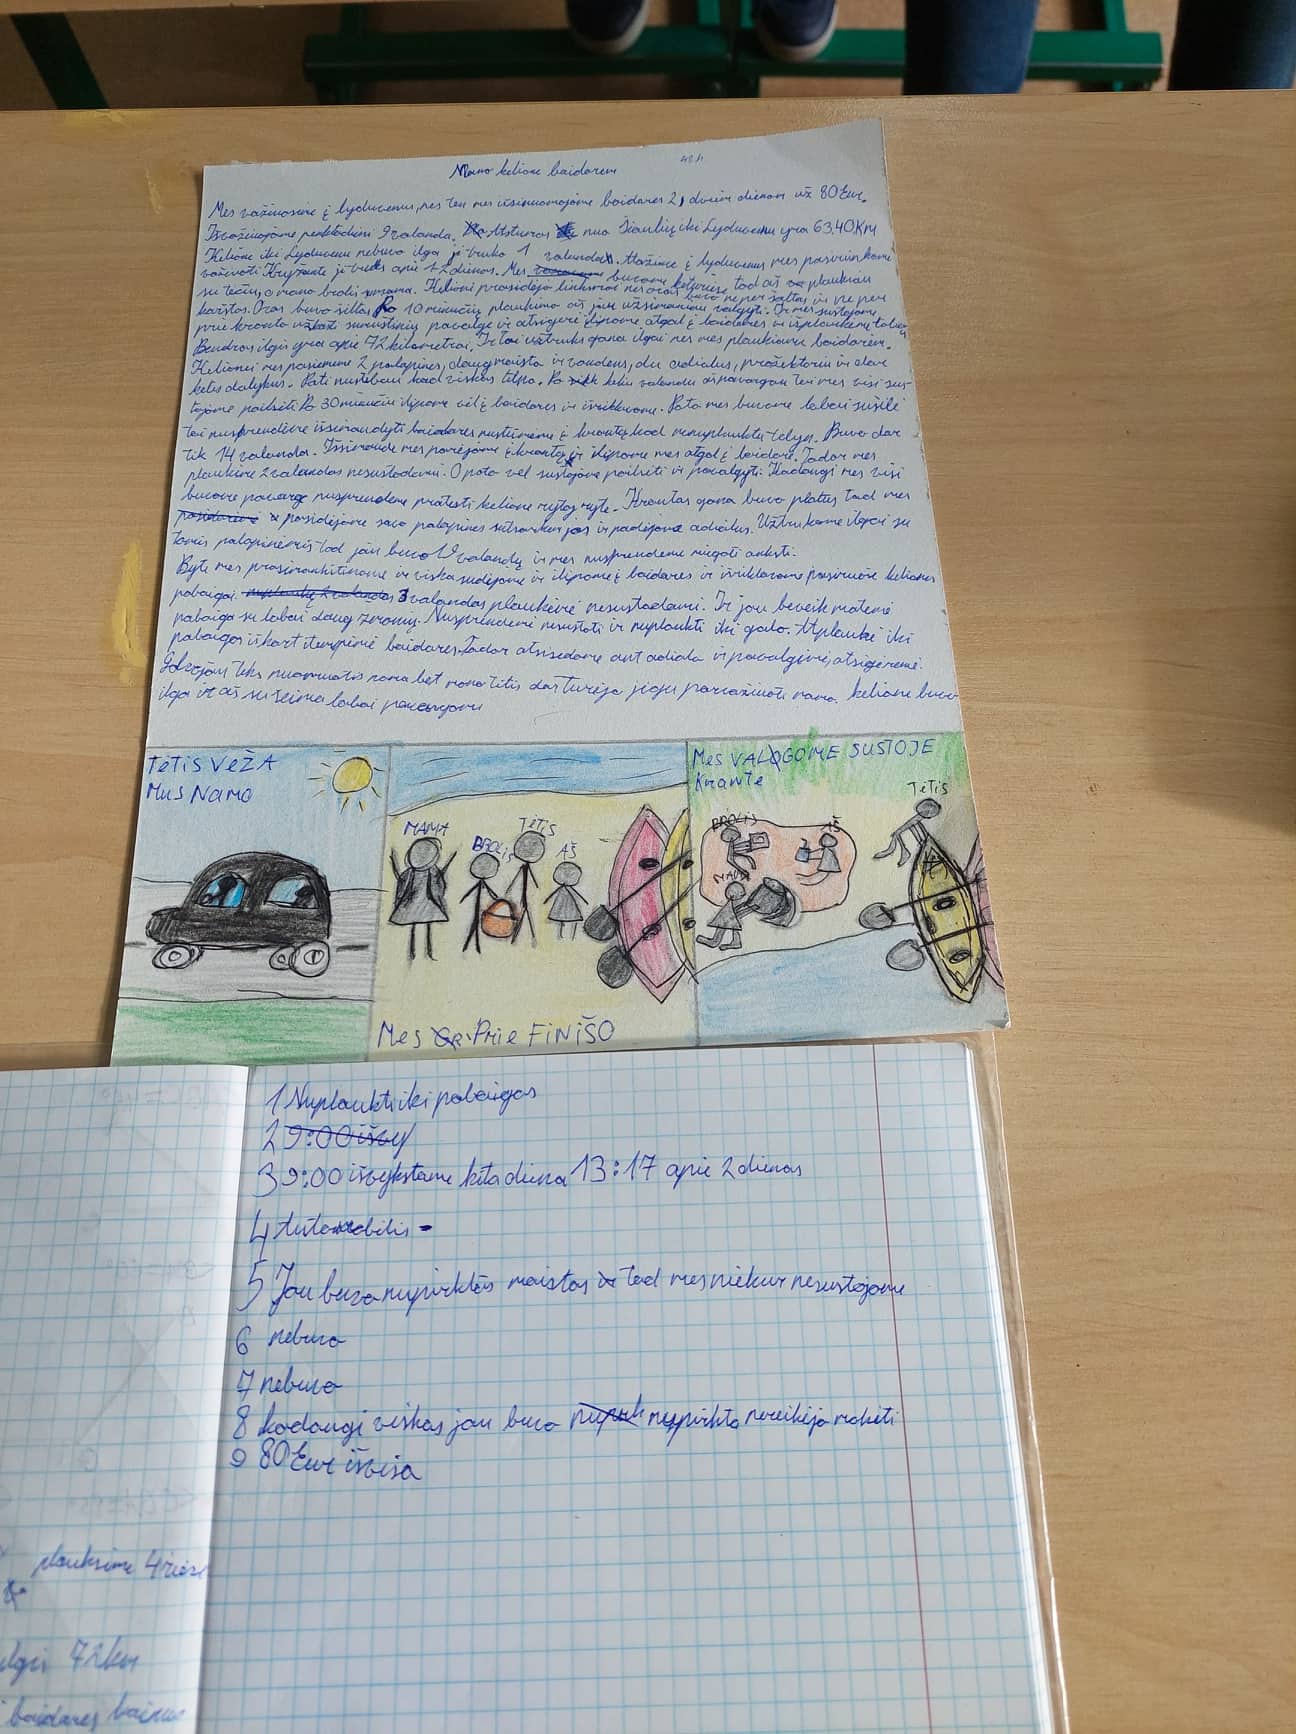 Mano kelione baidarem
Mes važiuosime į lyduvenus, nes ten mes išsinuomojome baidares 2, dviem dienom už 80 Eur.
Išvažinojome penktadieni 9 valanda. Atstumas nuo Šiaulių iki Lyduvenu yra 63,40 Km
Kelione iki Lyduvenu nebuvo ilga ji truko 1 valanda. Atažiuoe į lyduvenus mes pasirinkome
važiuoti Kryžante ji truks apie 1-2 dienas. Mes buvome keturiese tad aš plaukiau
su tečiu, o mano brolis su mama. Kelioni prasidėjo linksmai nes oras buvo ne per šaltas ir ne per
karštas. Oras buvo šiltas Po 10 minučių plaukimo aš jau užsimaniau valgyti. Ir mes sustojome
prie kranto užkasti sumuštinių pavalge ir atsigerę įlipome atgal į baidares ir išplaukeme toliau
Bendras ilgis yra apie 72 kilometrai. Ir tai užtruks gana ilgai nes mes plaukiame baidarem.
Kelionei mes pasieneme 2 palapines, daug maisto ir vandens, du adialus, prožektoriu ir dar
kelis dalykus. Pati nustebau kad viskas tilpo. Po keliu valandu aš pavargau tai mes visi sus-
tojome pailsėti Po 30 minučiu įlipome vėl į baidares ir išviklavome. Pato mes buvome labai sušilę
tai nusprendėme išsimaudyti baidares nustūmėme į krantą kad nenuplauktų tolyn. Buvo dar
tik 14 valanda. Išsimaude mes parėjome į krantą ir įlipome mes atgal į baidare. Tadar mes
plaukėme 2 valandas nesustodami. O poto vel sustojome pailsėti ir pavalgyti. Kadangi mes visi
buvome pavarge nusprendėme pratesti kelione rytoj ryte. Krantas gana buvo platus tad mes
pasidėjome savo palapines sutvarkėm jas ir padėjome adialus. Užtrukome ilgai su
tomis palapinėmis tad jau buvo 19 valandų ir mes nusprendėme miegoti anksti.
Ryte mes prasimankštinome ir viska sudėjome ir įlipome į baidares ir išviklavome pasiruoše keliones
pabaigai. 3 valandas plaukėmė nesustodami. Ir jau beveik matėmė
pabaiga su labai daug zmonių. Nusprendėmė nesustoti ir nuplaukti iki galo. Atplaukė iki
pabaigos iškart ištempėmė baidares. Tadar atsisedome ant adiala ir pavalgėmė, atsigėrėmė.
Galvojau teks nuomuotis nama bet mano tėtis dar turėjo jėgu parvažiuoti namo. kelione buvo
ilga ir aš su šeima labai pavargom
TĖTIS VEŽA
MUS NAMO
MAMA
BROLIS
TĖTIS
AŠ
Mes Prie FINIŠO
Mes VALGOME SUSTOJE
Krante
TĖTIS
BROLIS
AŠ
MAMA
1 Nuplaukti iki pabaigos
2 9:00 išvy
3 9:00 išvykstame kita diena 13:17 apie 2 dienas
4 Automobilis -
5 Jau buvo nupirktas maistas tad mes niekur nesustojome
6 nebuvo
7 nebuvo
8 kadangi viskas jau buvo nupirkta nereikėjo mokėti
9 80 Eur išviso
plauksime 4 riese
ilgis 72km
baidares